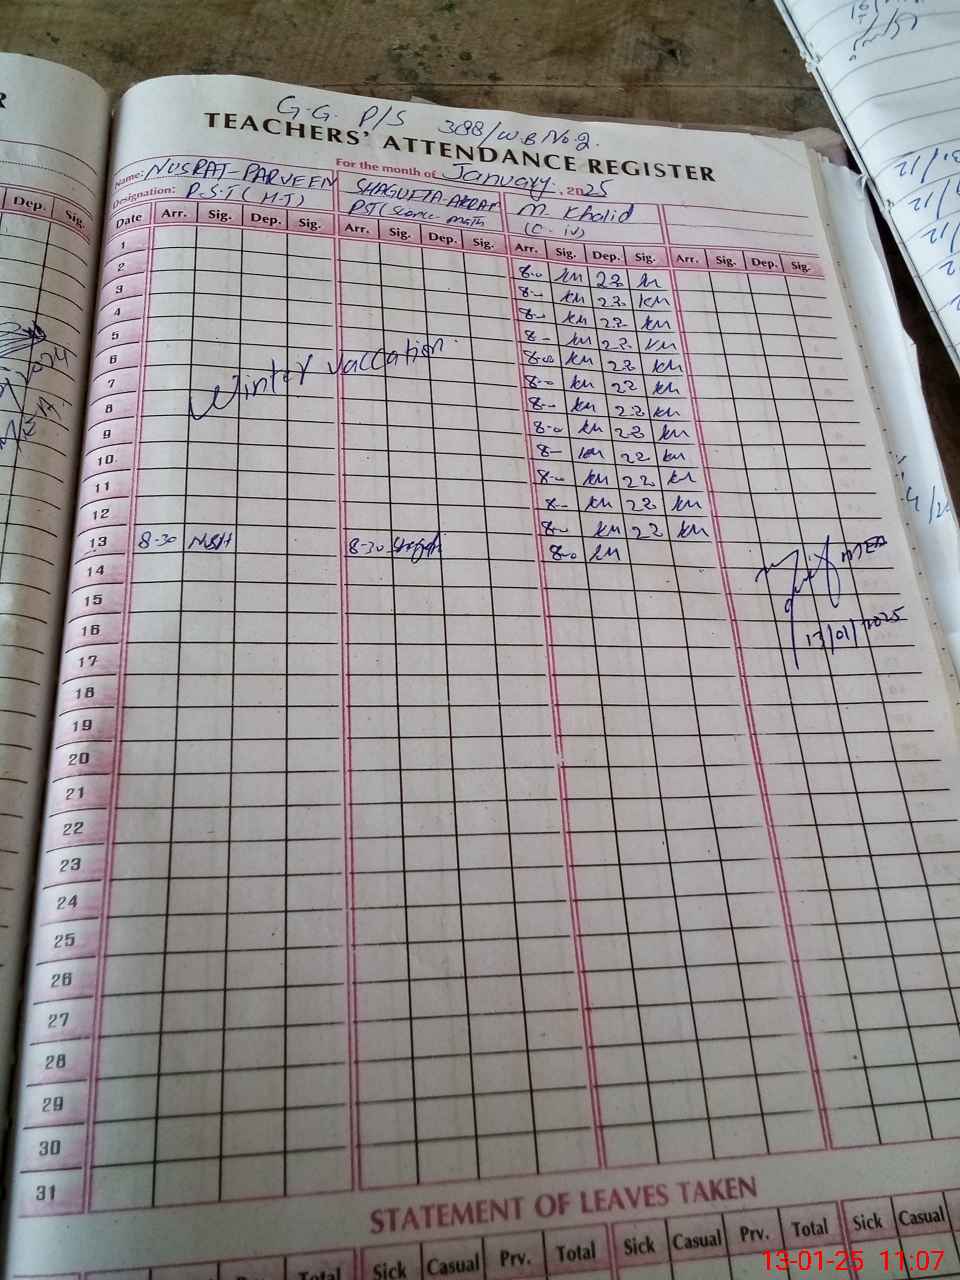 G.G. P/S 388/W.B No.2.
TEACHERS' ATTENDANCE REGISTER
For the month of January, 2025
Name: NUSRAT-PARVEEN
Designation: P.S.T (H-T)
SHAGUFTA
PST (Science math
M. Khalid
(C-iv)
Date Arr. Sig. Dep. Sig. Arr. Sig. Dep. Sig. Arr. Sig. Dep. Sig. Arr. Sig. Dep. Sig.
1 8-00 KM 22 KM
2 8- KM 22 KM
3 8-0 KM 22 KM
4 8- KM 22 KM
5 8-00 KM 22 KM
6 8-- KM 22 KM
7 8-- KM 22 KM
8 8-0 KM 22 KM
9 8- KM 22 KM
10 8-- KM 22 KM
11 8-- KM 22 KM
12 8-0 KM 22 KM
Winter vaccation.
13 8-30 NSH 8-30 8-0 KM
14
15
16
17
18
19
20
21
22
23
24
25
26
27
28
29
30
31
13/01/2025
STATEMENT OF LEAVES TAKEN
Total Sick Casual Prv. Total Sick Casual Prv. Total Sick Casual
Dep. Sig.
13-01-25 11:07